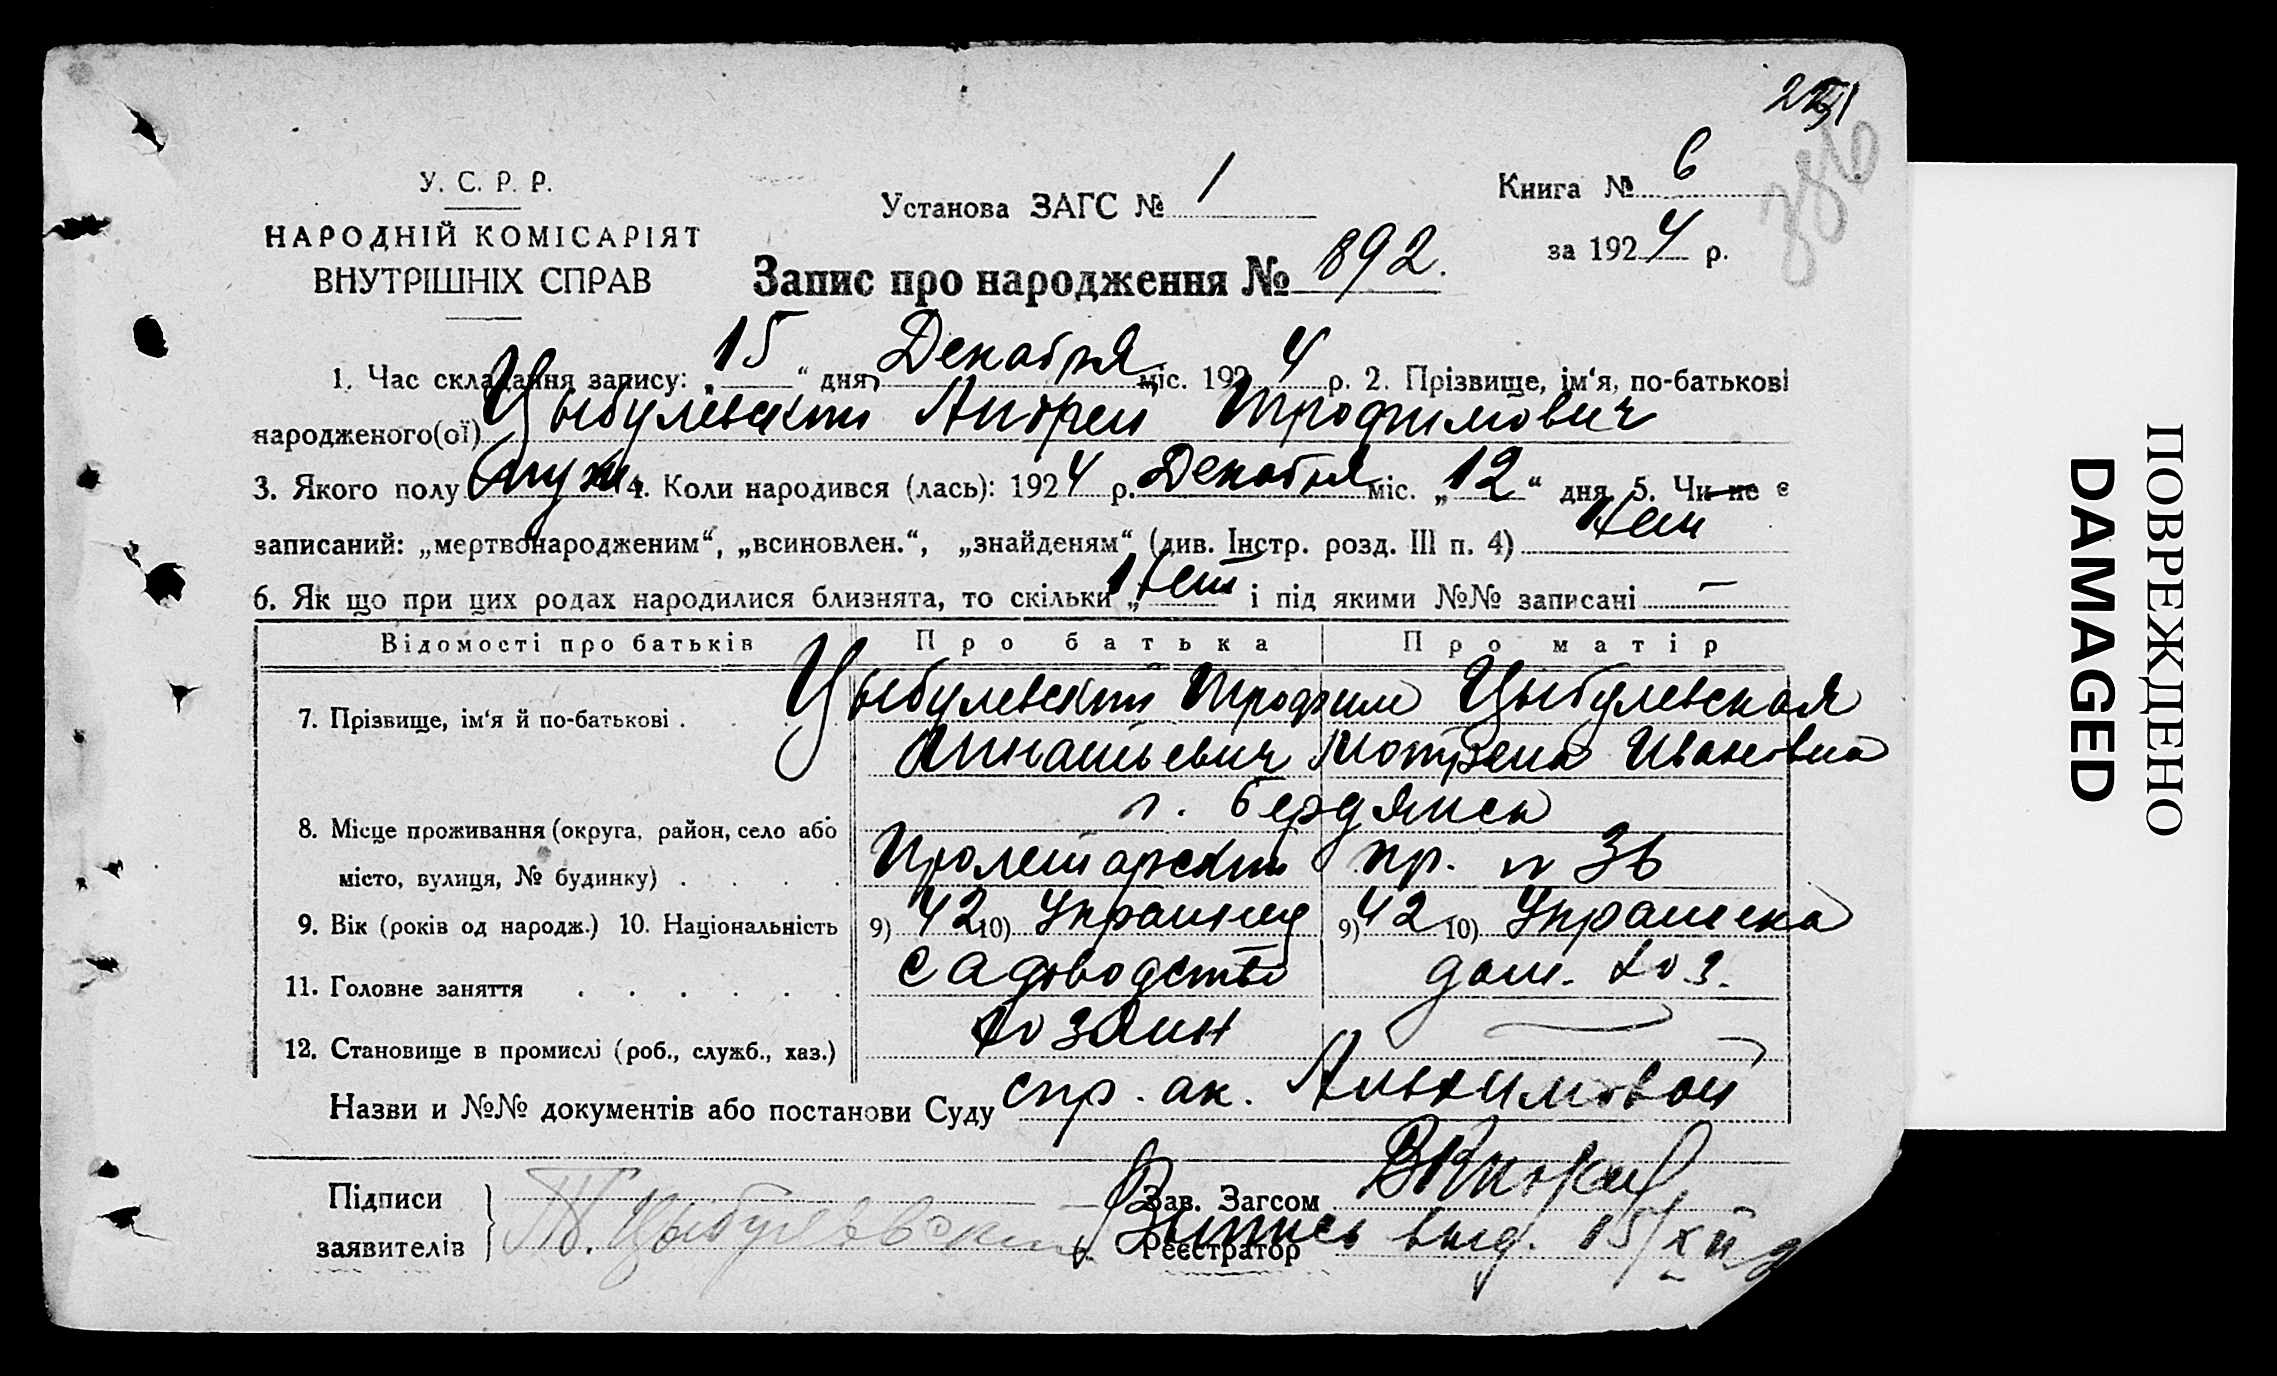 У. С. Р. Р.
НАРОДНІЙ КОМІСАРІЯТ
ВНУТРІШНІХ СПРАВ
Установа ЗАГС № 1
Книга № 6
за 1924 р.
Запис про народження № 892.
1. Час складання запису: „15“ дня Декабря міс. 1924 р. 2. Прізвище, ім‘я, по-батькові
народженого(ої) Цыбулевский Андрей Трофимович
3. Якого полу муж 4. Коли народився (лась): 1924 р. Декабря міс. „12“ дня 5. Чи не є
записаний: „мертвонародженим“, „всиновлен.“, „знайденям“ (див. Інстр. розд. III п. 4) Нет
6. Як що при цих родах народилися близнята, то скільки „Нет і під якими №№ записані —
Відомості про батьків Про батька Про матір
7. Прізвище, ім‘я й по-батькові . Цыбулевский Трофим Цыбулевская
Игнатьевич Мотрена Ивановна
г. Бердянск
8. Місце проживання (округа, район, село або
місто, вулиця, № будинку) . . . . Пролетарский пр. № 36
9. Вік (років од народж.) 10. Національність 9) 42 10) Украинец 9) 42 10) Украинка
11. Головне заняття . . . . . . садоводство дом. хоз.
12. Становище в промислі (роб., служб., хаз.) хозяин —
Назви и №№ документів або постанови Суду спр. ак.
Підписи
заявителів
Т. Цыбулевский
Зав. Загсом
Реєстратор
Выпись выд. 15/XII
ПОВРЕЖДЕНО
DAMAGED